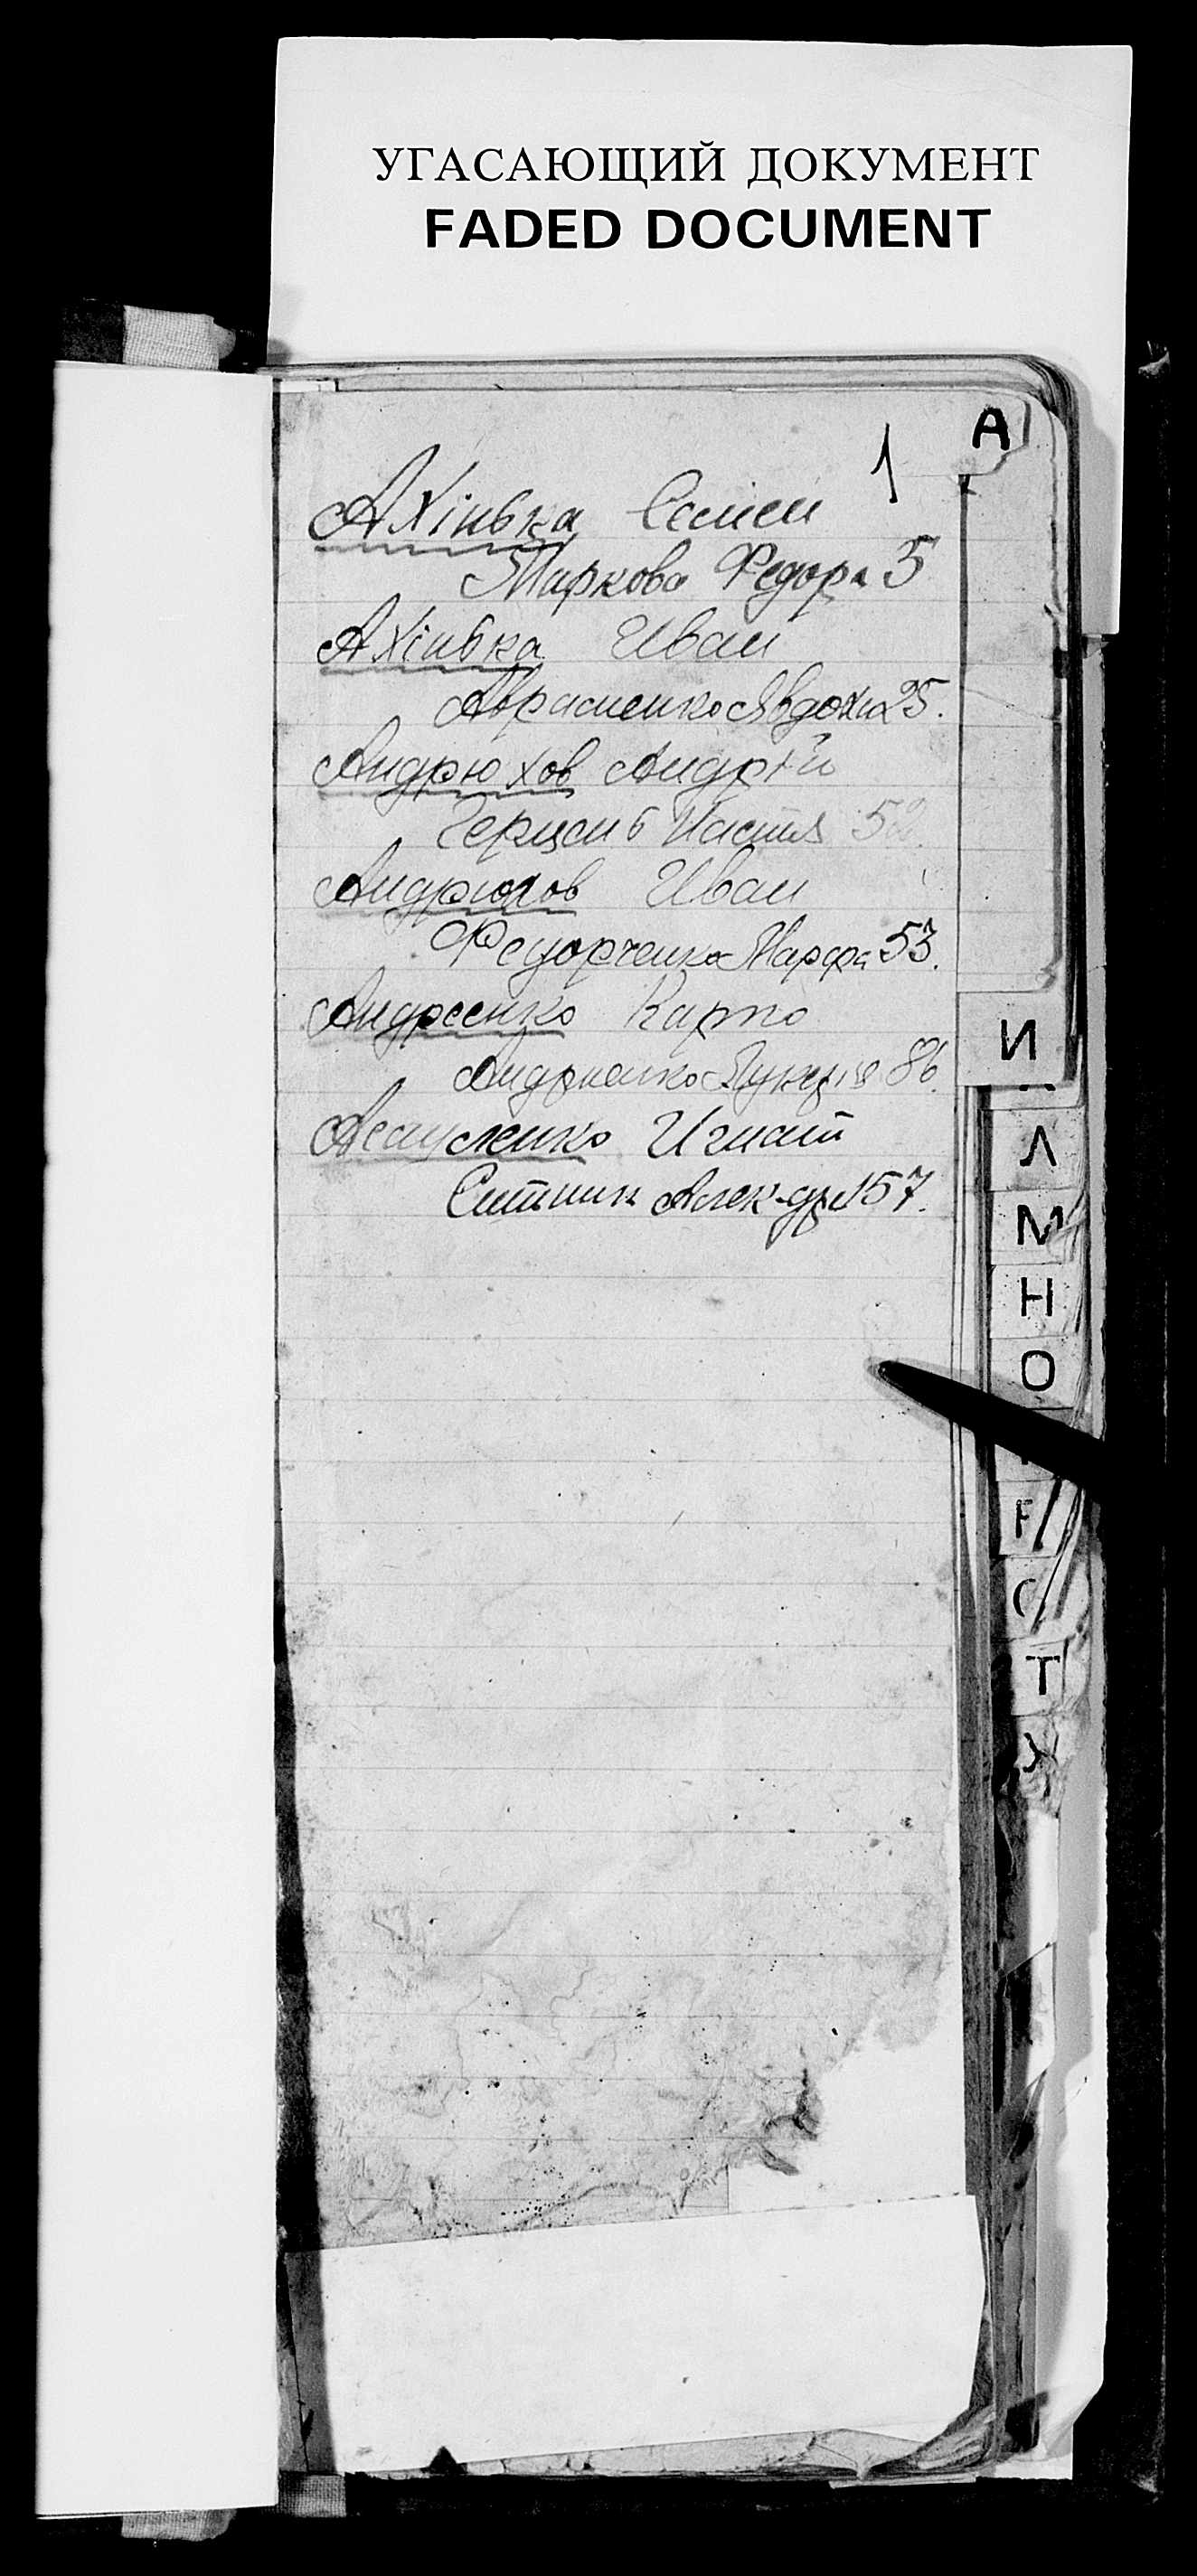 УГАСАЮЩИЙ ДОКУМЕНТ
FADED DOCUMENT
1
А
Ахінька Семен
Маркова Федора 5
Ахінька Иван
Авраменко Явдоха 25.
Андрюхов Андрій
Настя 52.
Андрюхов Иван
Федорченко Марфа 53.
Андреенко Карпо
Андриенко Лукерія 86.
Асауленко Игнат
Ситник Алек-дра 157.
И
Л
М
Н
О
Р
С
Т
У